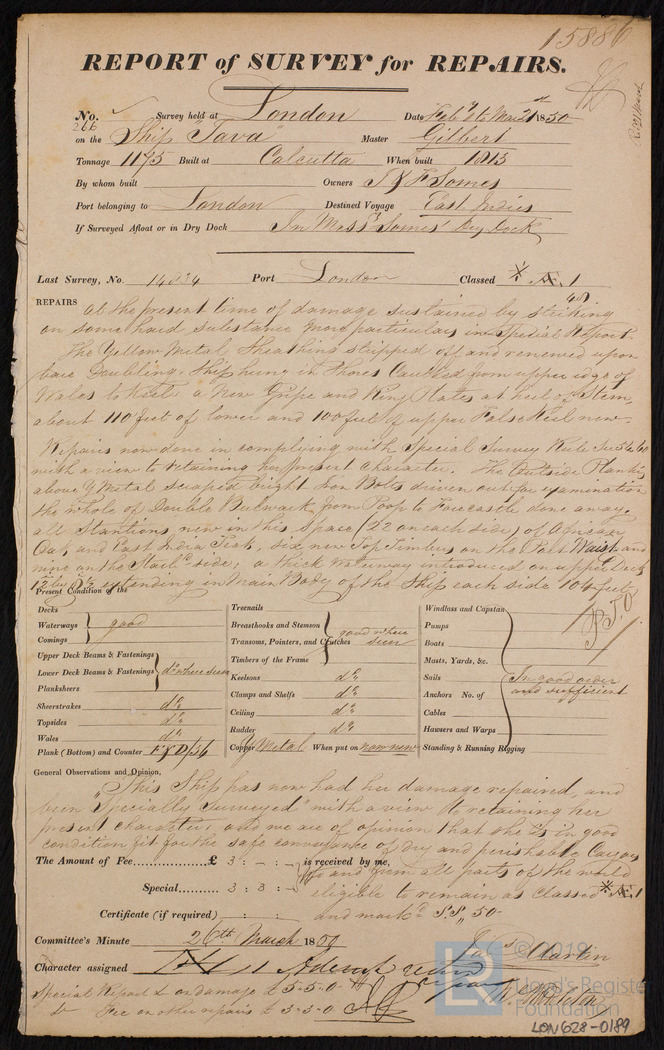 15886
REPORT of SURVEY for REPAIRS.
No. 266 Survey held at London Date Feb 9 to Mar 21st 1850
on the Ship "Java" Master Gilbert
Tonnage 1175 Built at Calcutta When built 1813
By whom built Owners J & F Somes
Port belonging to London Destined Voyage East Indies
If Surveyed Afloat or in Dry Dock In Messrs Somes' Dry Dock
Last Survey, No. 14834 Port London Classed Æ 1
REPAIRS at the present time of damage sustained by striking
on some hard substance more particulars in Special Report.
The Yellow Metal Sheathing stripped off and renewed upon
bare Doubling. Ship hung in Shores Caulked from upper edge of
Wales to Keel a New Gripe and Ring Plates at heel of Stem,
about 110 feet of lower and 100 feet of upper False Keel new.
Repairs now done in complying with Special Survey Rule
with a view to retaining her present Character. The Outside Planks
above Y Metal scraped Eight Iron Bolts driven out for examination
the whole of Double Bulwark from Poop to Forecastle done away,
all Stantions new in this space (22 on each side) of African
Oak, and East India Teak, six new Top Timbers on the Port Waist and
nine on the Starbd side, a thick Waterway introduced on upper Deck
extending in Main Body of the Ship each side 104 feet
P.T.O
Present Condition of the
Decks
Waterways good
Comings
Upper Deck Beams & Fastenings
Lower Deck Beams & Fastenings do where seen
Planksheers
Sheerstrakes do
Topsides do
Wales do
Plank (Bottom) and Counter F & D/36
Treenails
Breasthooks and Stemson good where
Transoms, Pointers, and Crutches seen
Timbers of the Frame
Keelsons do
Clamps and Shelfs do
Ceiling do
Rudder do
Copper Y Metal When put on now new
Windlass and Capstan
Pumps
Boats
Masts, Yards, &c.
Sails In good order
Anchors No. of and sufficient
Cables
Hawsers and Warps
Standing & Running Rigging
General Observations and Opinion,
This Ship has now had her damage repaired, and
been "Specially Surveyed" with a view to retaining her
present character, and we are of opinion that she is in good
condition fit for the safe conveyance of dry and perishable Cargoes
The Amount of Fee............... £ 3 : - : - is received by me,
to and from all parts of the world
Special........ 3 : 3 : -
eligible to remain as Classed Æ 1
Certificate (if required) : :
and markd S.S, 50-
Committee's Minute 26th March 1850
Character assigned
Jas Martin
Special Report £ on damage £ 5-5-0
Do Fee on other repairs £ 3-3-0
© 2019
LR
Lloyd's Register
Foundation
LON628-0189